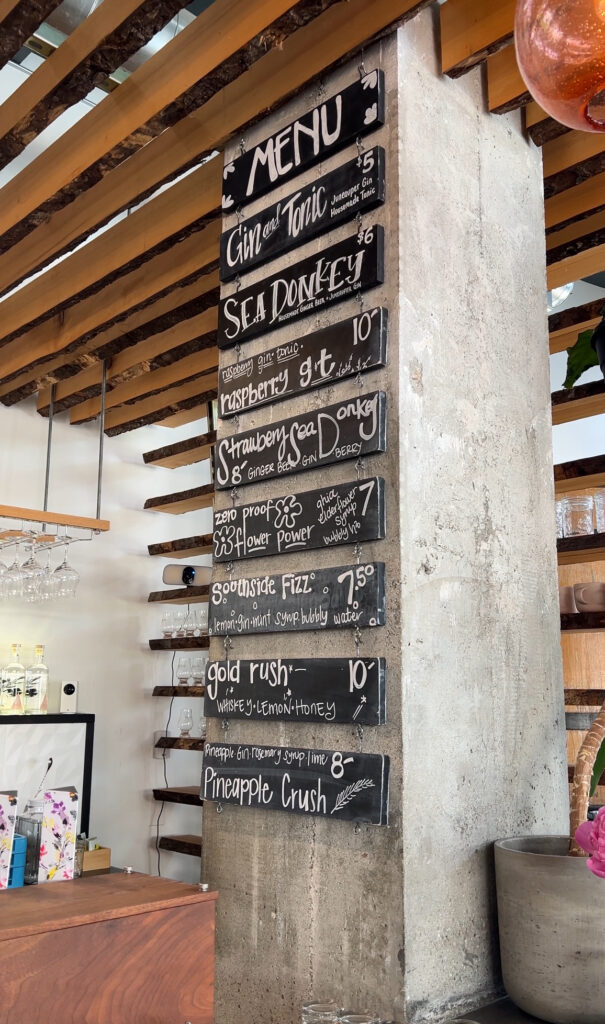 MENU
Gin and Tonic $5
Juneauper Gin
Housemade Tonic
Sea Donkey $6
Housemade Ginger Beer + Juneauper Gin
raspberry gin · tonic · 10-
raspberry g+t
Strawberry Sea Donkey
8- GINGER BEER GIN BERRY
zero proof
flower power
ghia
elderflower
syrup
bubbly h2o
7
Southside Fizz 7.50
lemon·gin·mint syrup·bubbly water
gold rush - 10-
WHISKEY·LEMON·HONEY
Pineapple Gin·rosemary syrup·lime 8-
Pineapple Crush